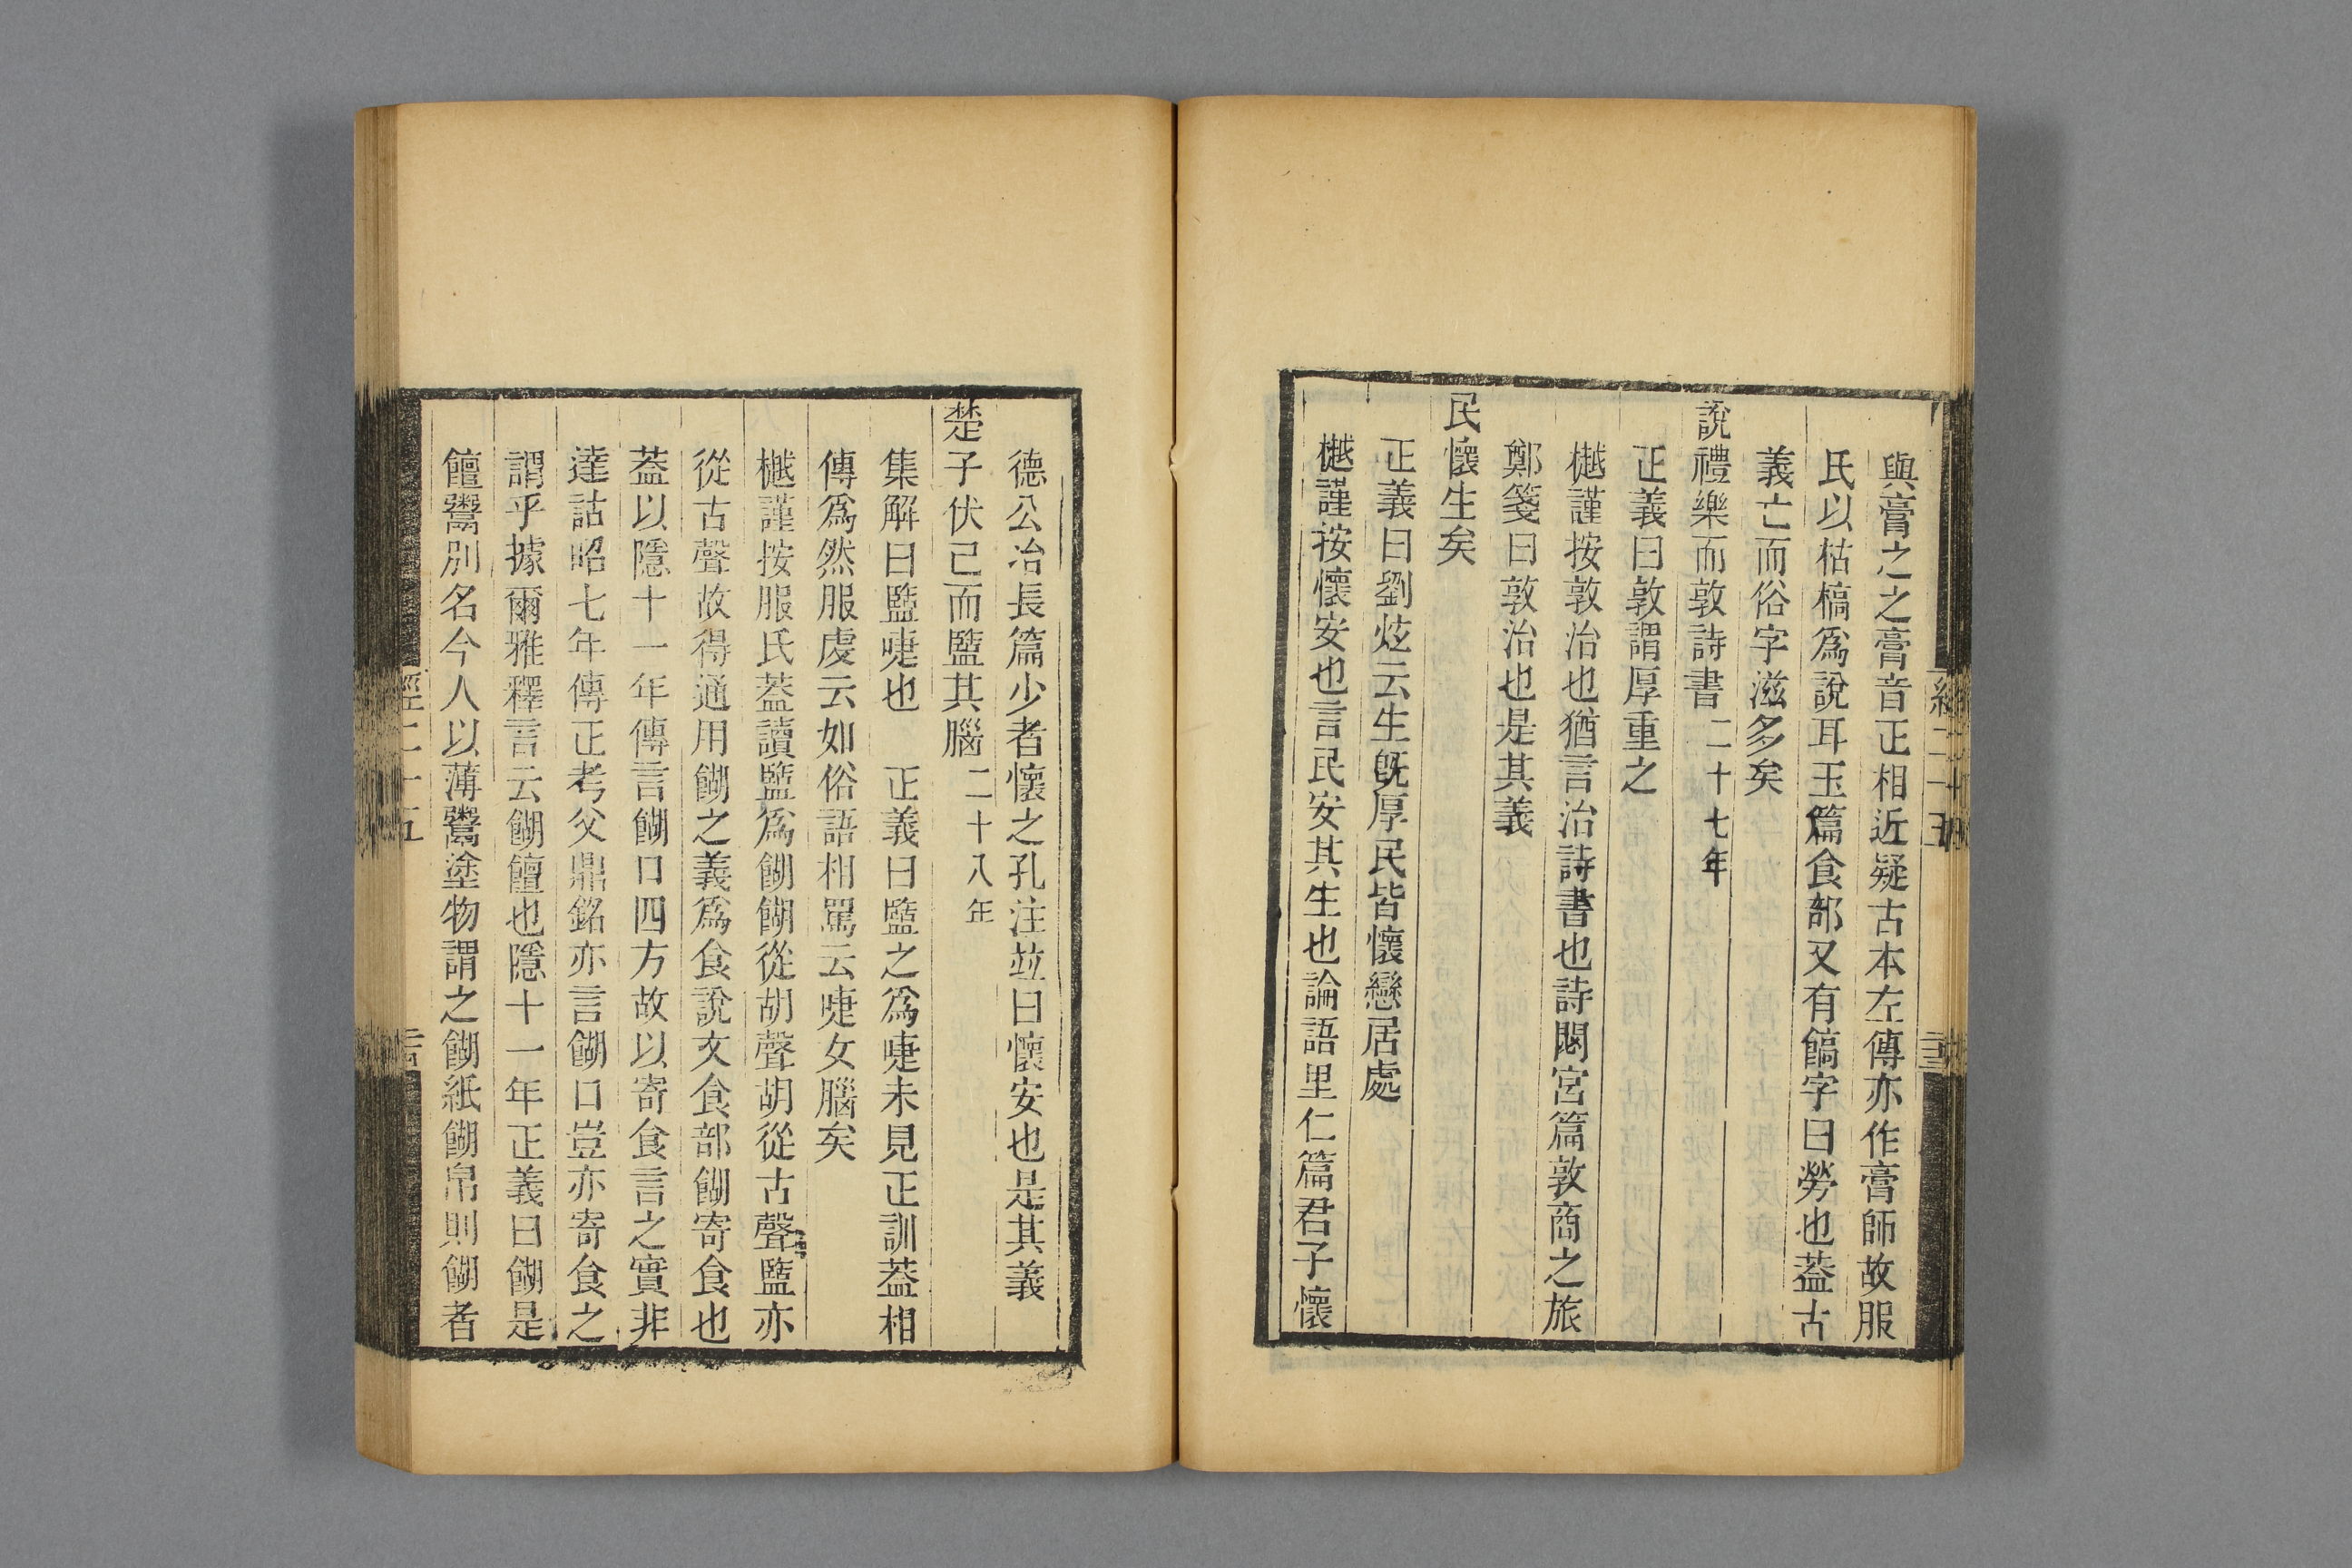 與膏之之膏音正相近疑古本左傳亦作膏師故服
氏以枯槁爲說耳玉篇食部又有餻字曰勞也葢古
義亡而俗字滋多矣
說禮樂而敦詩書二十七年
正義曰敦謂厚重之
樾謹按敦治也猶言治詩書也詩閟宮篇敦商之旅
鄭箋曰敦治也是其義
民懷生矣
正義曰劉炫云生旣厚民皆懷戀居處
樾謹按懷安也言民安其生也論語里仁篇君子懷
德公冶長篇少者懷之孔注竝曰懷安也是其義
楚子伏己而盬其腦二十八年
集解曰盬啑也 正義曰盬之爲啑未見正訓葢相
傳爲然服虔云如俗語相罵云啑女腦矣
樾謹按服氏葢讀盬爲餬餬從胡聲胡從古聲盬亦
從古聲故得通用餬之義爲食說文食部餬寄食也
葢以隱十一年傳言餬口四方故以寄食言之實非
達詁昭七年傳正考父鼎銘亦言餬口豈亦寄食之
謂乎據爾雅釋言云餬饘也隱十一年正義曰餬是
饘鬻別名今人以薄鬻塗物謂之餬紙餬帛則餬者
經二十五